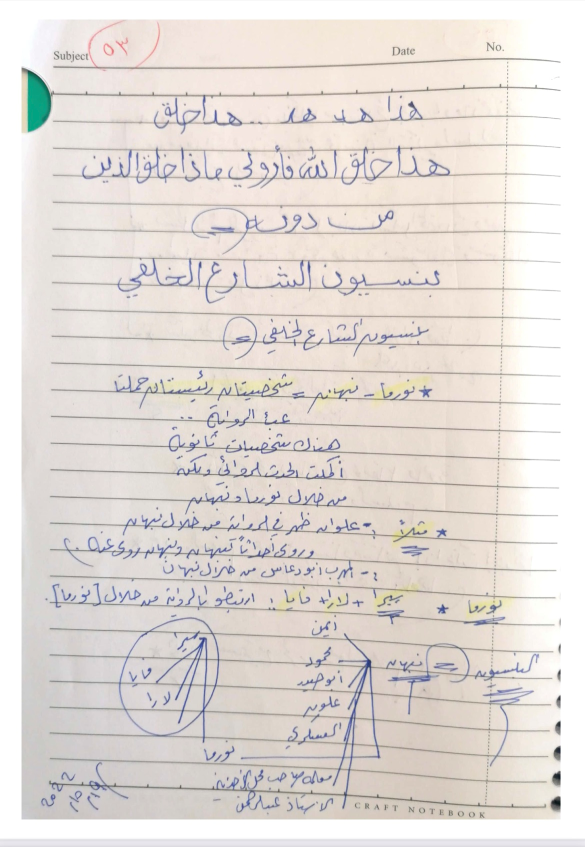 Subject ٥٣ Date No.
هذا هد هد .. هذا خلق
هذا خلق الله فأروني ماذا خلق الذين
من دونه =
بنسيون الشارع الخلفي
بنسيون الشارع الخلفي =
* نورما - نبهان = شخصيتان رئيستان حملتا
عبأ الرواية ..
هناك شخصيات ثانوية
أكملت الحدث الروائي ولكنه
من خلال نورما ونبهان
* مثلاً :- علوان ظهر في الرواية من خلال نبهان
وروى أحداثاً نبهان ونبهان روى عنه
:- أبو دعاس من خلال نبهان
نورما * ميرا + لارا + مايا : ارتبطوا بالرواية من خلال [نورما].
أيمن
ميرا
محمود
البنسيون = نبهان
مايا
لارا
علوان
نورما
الأستاذ عبدالرحمن
٢٠٢٢
CRAFT NOTEBOOK